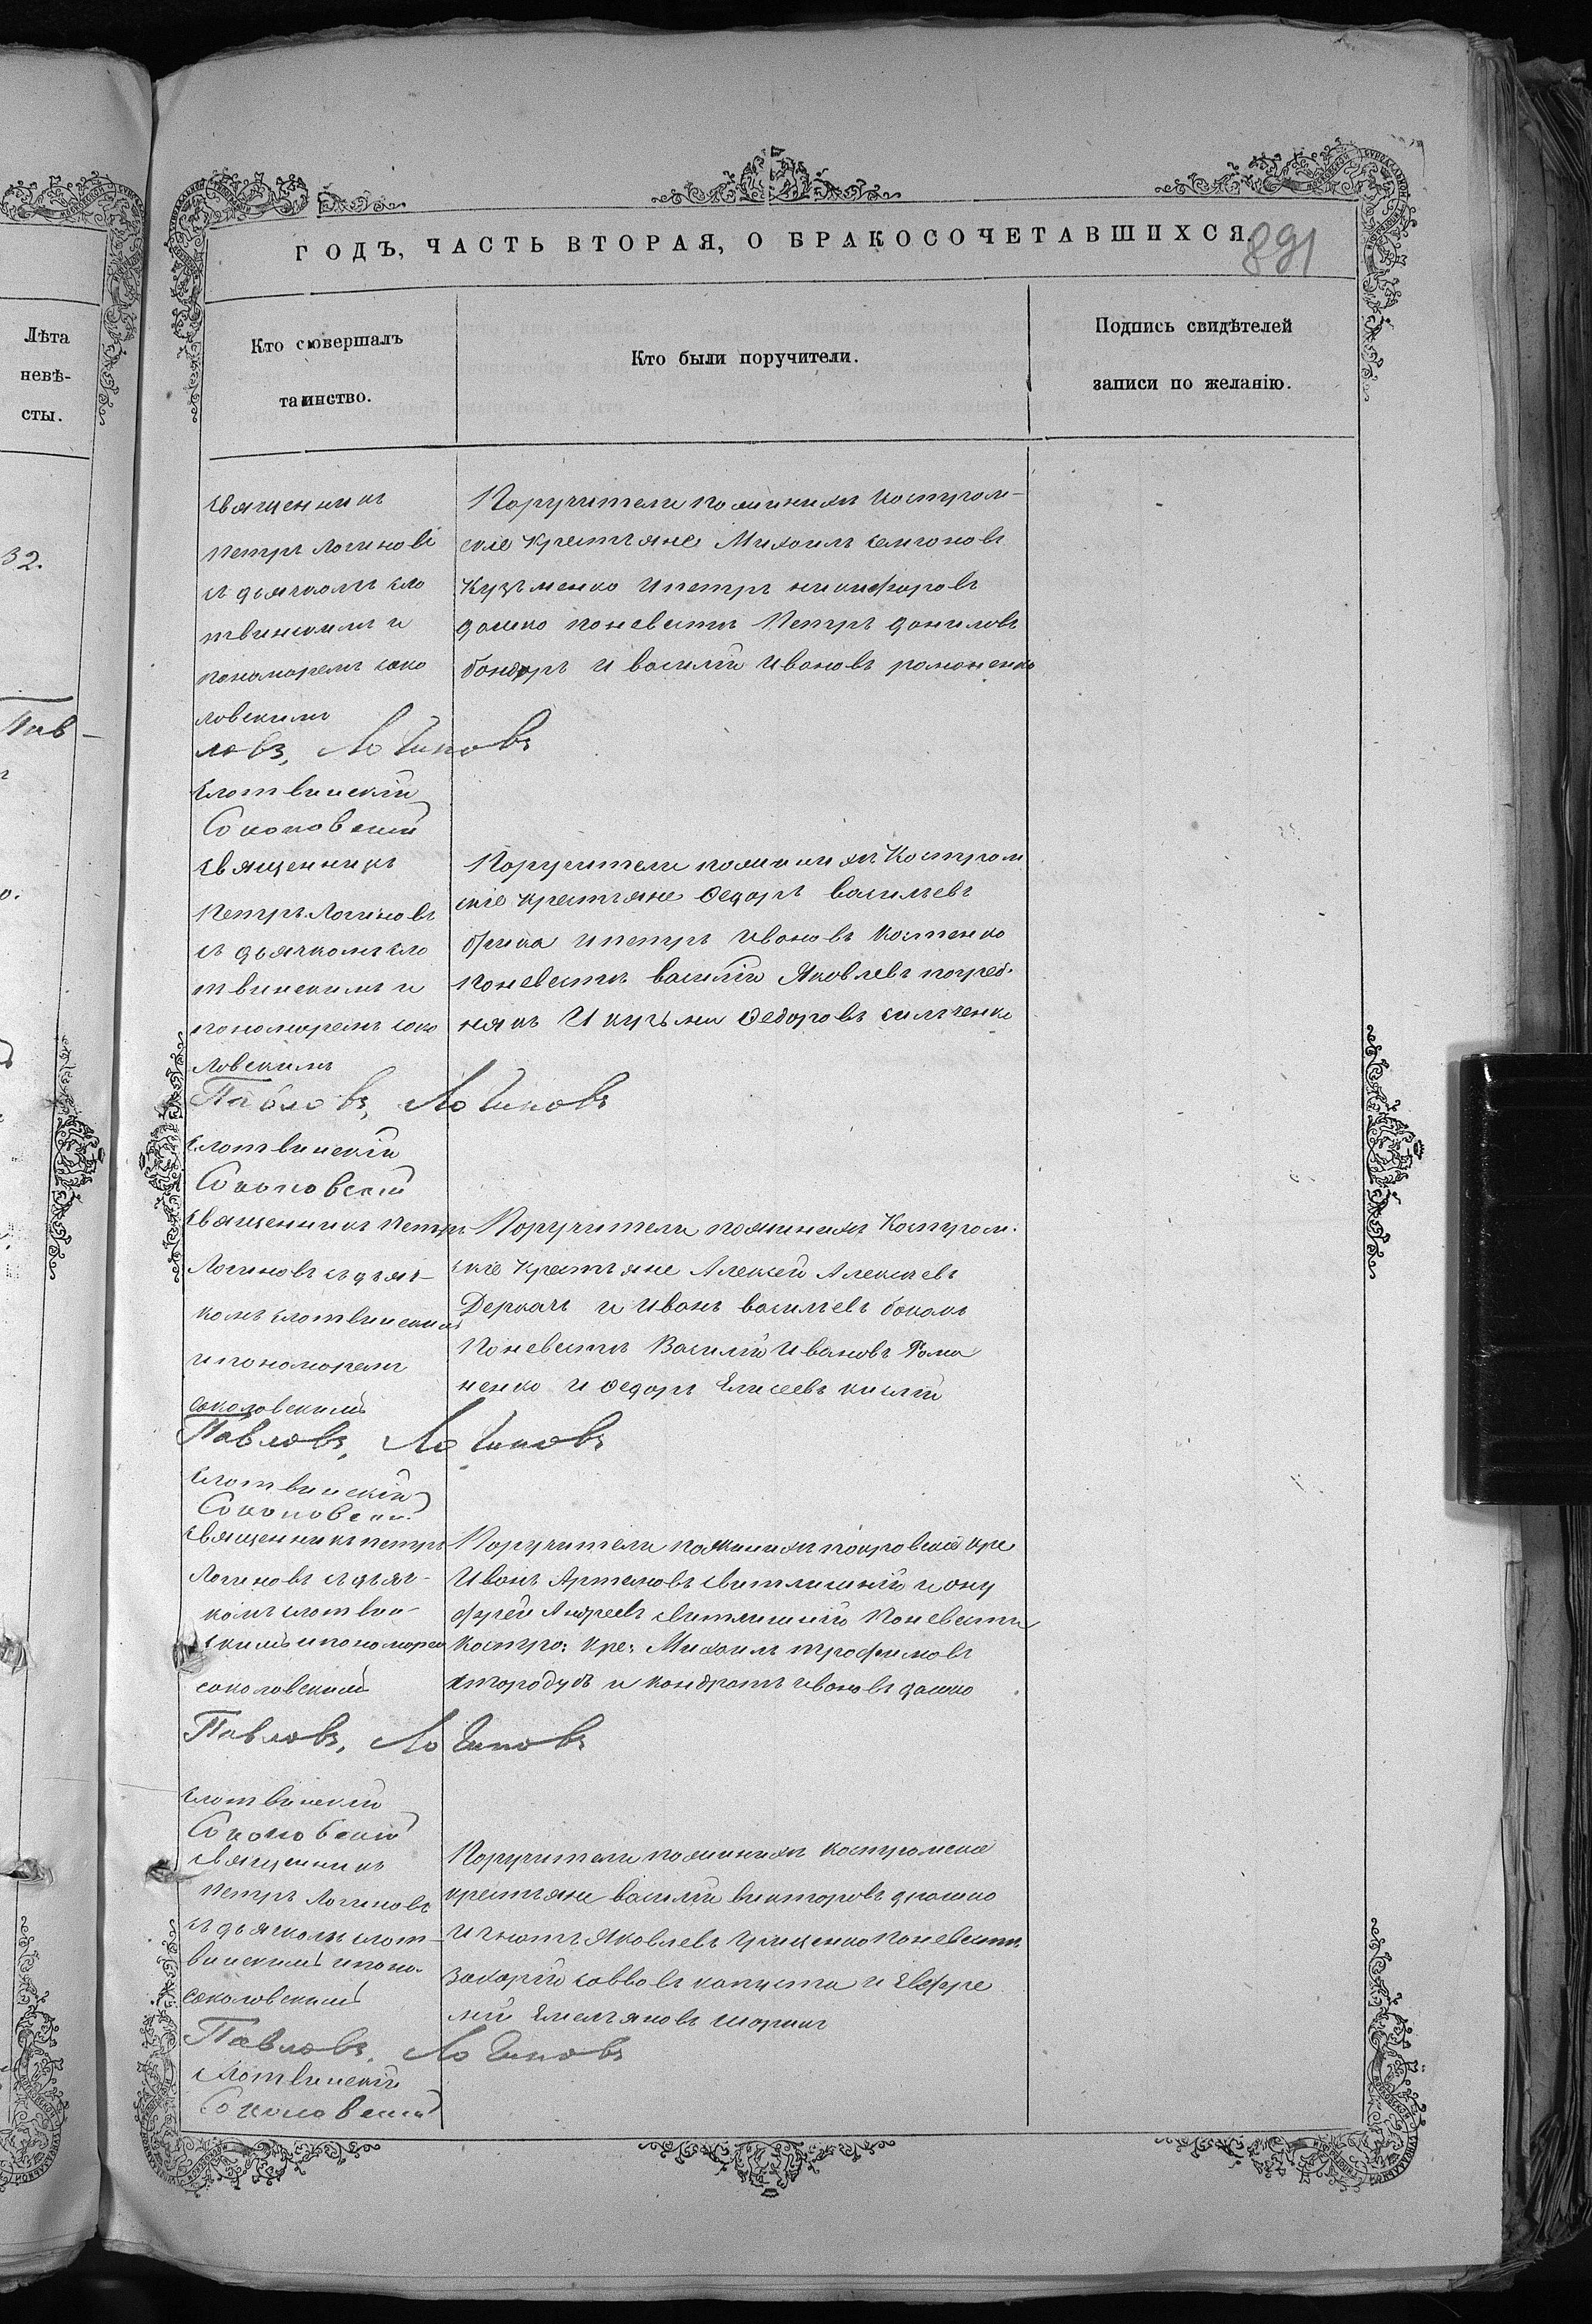 Лѣта
невѣ-
сты.
32.
Пав-
ГОДЪ, ЧАСТЬ ВТОРАЯ, О БРАКОСОЧЕТАВШИХСЯ.
891
Кто совершалъ
таинство.
Кто были поручители.
Подпись свидѣтелей
записи по желанію.
Священникъ
Петръ Логиновъ
съ дьячкомъ Сло
твинскимъ и
пономоремъ соко
ловскимъ
ловъ, Логиновъ
Слотвинскій
Соколовский
Поручители по женихѣ Костром-
скіе крестьяне Михаилъ
Кузьменко и петръ никифоровъ
дашко по невѣстѣ Петръ даниловъ
бондаръ и василій Ивановъ романенко
Священникъ
Петръ Логиновъ
съ дьячкомъ Сло
твинскимъ и
пономоремъ соко
ловскимъ
Павловъ, Логиновъ
Слотвинскій
Соколовский
Поручители по женихѣ Костром
скіе крестьяне Ѳедоръ васильевъ
и петръ Ивановъ Костенко
по невѣстѣ василій Яковлевъ погреб-
някъ И кузьма Ѳедоровъ
Священникъ Петръ
Логиновъ съ дьяч-
комъ Слотвинскимъ
и пономоремъ
соколовскимъ
Павловъ, Логиновъ
Слотвинскій
Соколовский
Поручители по женихѣ Костром-
скіе Крестьяне Алексей Алексеевъ
Деркачъ и Иванъ васильевъ
По невѣстѣ Василій Ивановъ Рома
ненко и Ѳедоръ Елисеевъ кислий
Священникъ петръ
Логиновъ съ дьяч-
комъ слотвин-
скимъ и пономоре
соколовскимъ
Павловъ, Логиновъ
Слотвинскій
Соколовский
Поручители по женихѣ покровскіе кре
Иванъ Артемовъ и ону
фрей Андреевъ По невѣстѣ
костро: кре: Михаилъ трофимовъ
и кондратъ ивановъ дашко
Священникъ
Петръ Логиновъ
съ дьячкомъ слот-
винскимъ и поно.
соколовскимъ
Павловъ, Логиновъ
Слотвинскій
Соколовский
Поручители по женихѣ костромскіе
крестьяне василій викторовъ
И Яковлевъ Грищенко По невѣстѣ
Захарій савовъ капуста и Евфре
мій Емельяновъ